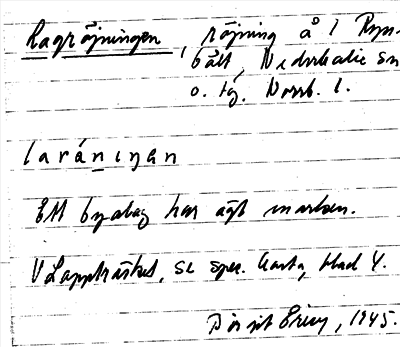 Lagröjningen, röjning å 1 Rym-
bält, Nederkalix sn
o. tg. Norrb. l.
laránıŋan
Ett byalag har ägt marken.
V Lappträsket, se spec. karta blad 4.
Birgit Ericz, 1945.